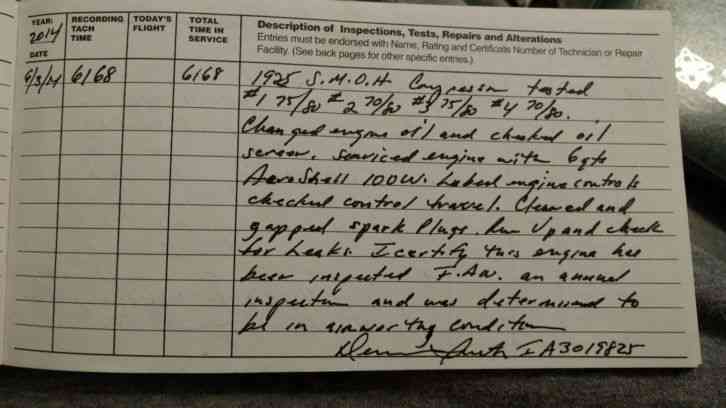 YEAR: 2014
DATE
RECORDING TACH TIME
TODAY'S FLIGHT
TOTAL TIME IN SERVICE
Description of Inspections, Tests, Repairs and Alterations
Entries must be endorsed with Name, Rating and Certificate Number of Technician or Repair
Facility. (See back pages for other specific entries.)
6168 6168 1925 S.M.O.H Compression tested
#1 75/80 #2 70/80 #3 75/80 #4 70/80.
Changed engine oil and checked oil
screen. Serviced engine with 6 qts
AeroShell 100W. Lubed engine controls
checked control travel. Cleaned and
gapped spark plugs. Run Up and check
for Leaks. I certify this engine has
been inspected I.A.W. an annual
inspection and was determined to
be in airworthy condition
IA3019825